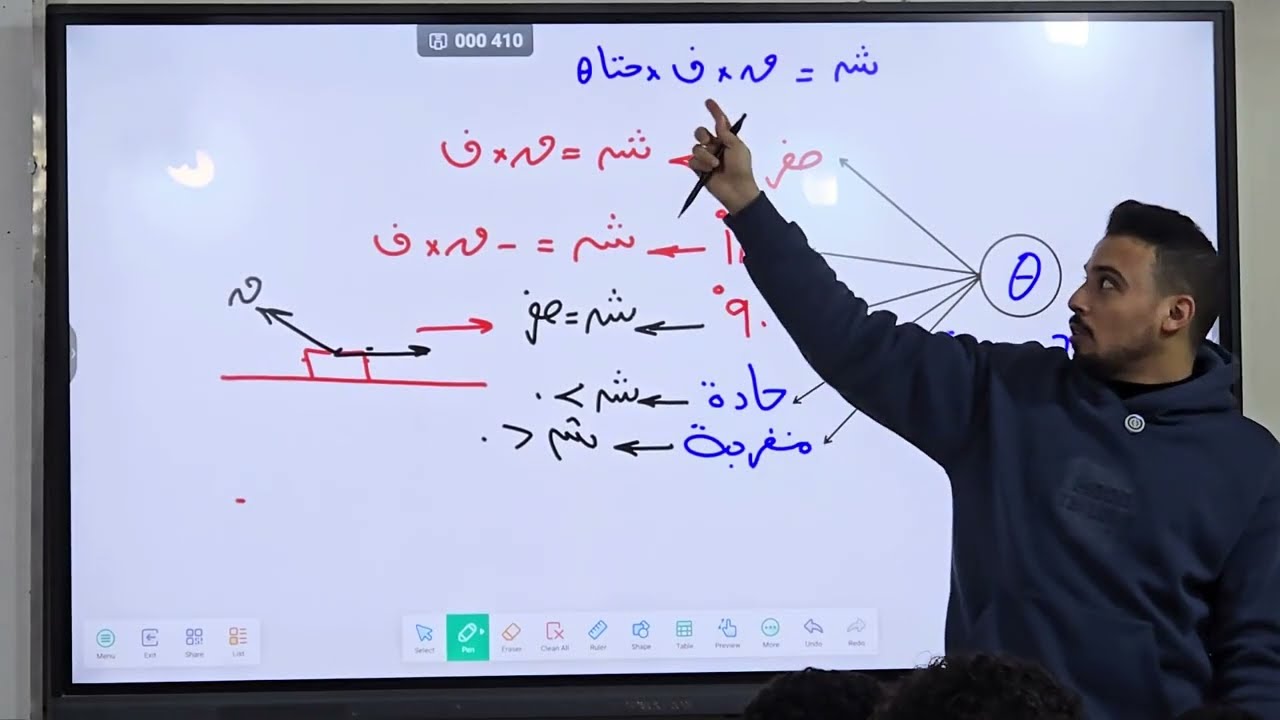 000 410
شـ = ق × ف × حتا θ
صفر ← شـ = ق × ف
شـ = - ق × ف
θ
٩٠° ← شـ = صفر
ق
حادة ← شـ > ٠
منفرجة ← شـ < ٠
Menu Exit Share List Select Pen Eraser Clean All Ruler Shape Table Preview More Undo Redo